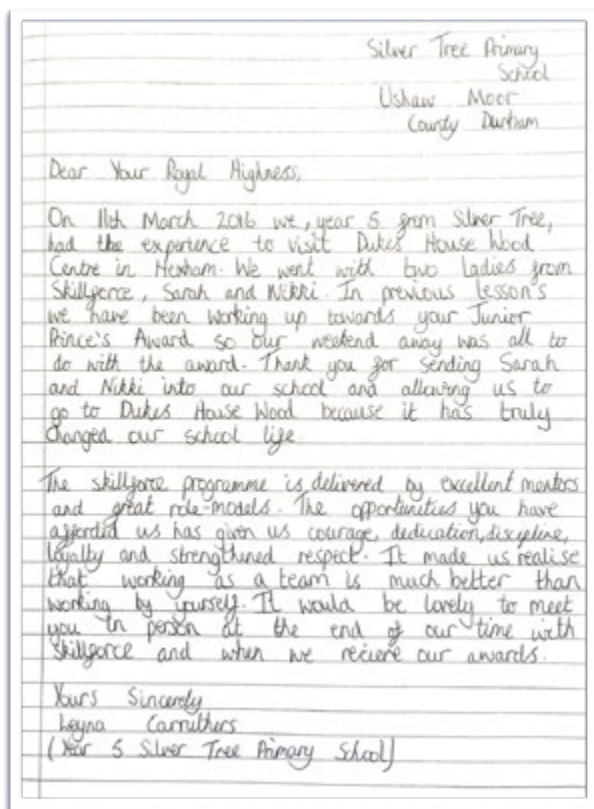 Silver Tree Primary
School
Ushaw Moor
County Durham
Dear Your Royal Highness,
On 11th March 2016 we, year 5 from Silver Tree,
had the experience to visit Dukes House Wood
Centre in Hexham. We went with two ladies from
Skillforce, Sarah and Nikki. In previous lesson's
we have been working up towards your Junior
Prince's Award so our weekend away was all to
do with the award. Thank you for sending Sarah
and Nikki into our school and allowing us to
go to Dukes House Wood because it has truly
changed our school life
The skillforce programme is delivered by excellent mentors
and great role-models. The opportunities you have
afforded us has given us courage, dedication, discipline,
loyalty and strengthened respect. It made us realise
that working as a team is much better than
working by yourself. It would be lovely to meet
you in person at the end of our time with
skillforce and when we recieve our awards.
Yours Sincerely
Leyna Carruthers
(Year 5 Silver Tree Primary School)